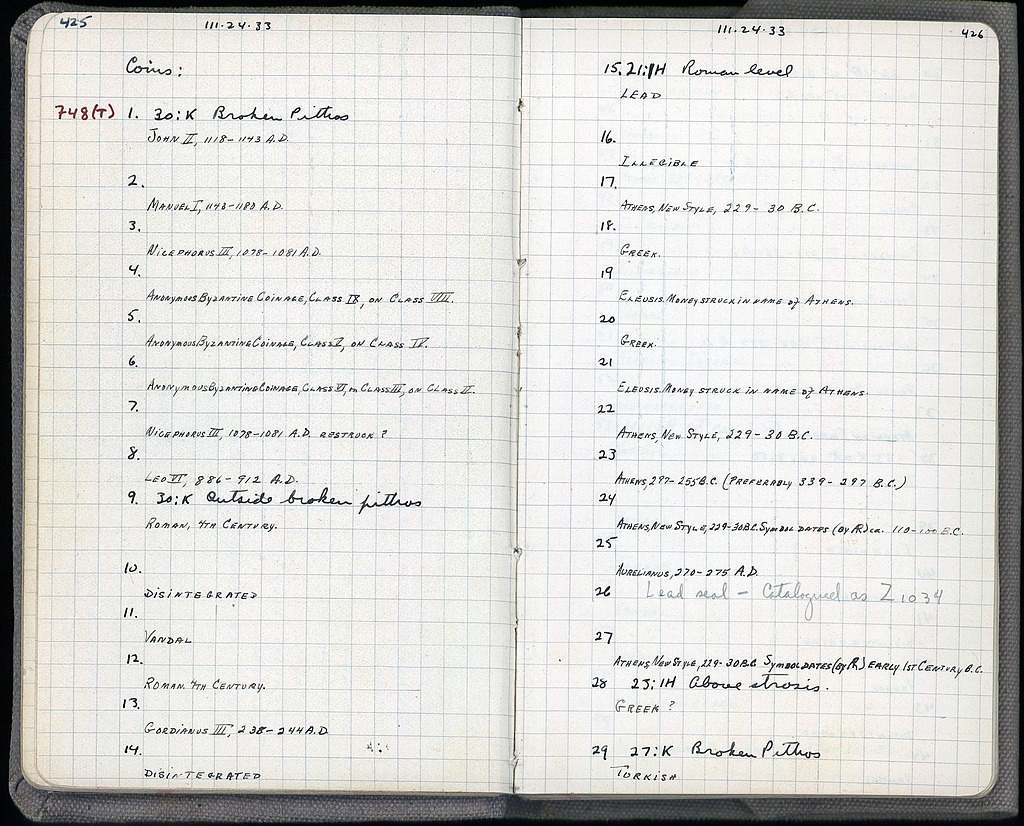 425
111·24·33
Coins:
748(T) 1. 30:K Broken Pithos
JOHN II, 1118-1143 A.D.
2.
MANUEL I, 1143-1180 A.D.
3.
NICEPHORUS III, 1078-1081 A.D.
4.
ANONYMOUS BYZANTINE COINAGE, CLASS IX, ON CLASS VIII.
5.
ANONYMOUS BYZANTINE COINAGE, CLASS V, ON CLASS IV.
6.
ANONYMOUS BYZANTINE COINAGE, CLASS VI, on CLASS III, ON CLASS II.
7.
NICEPHORUS III, 1078-1081 A.D. RESTRUCK?
8.
LEO VI, 886-912 A.D.
9. 30:K Outside broken pithos
ROMAN, 4TH CENTURY.
10.
DISINTEGRATED
11.
VANDAL
12.
ROMAN 4TH CENTURY.
13.
GORDIANUS III, 238-244 A.D.
14.
DISINTEGRATED
111·24·33
426
15. 21:H Roman level
LEAD
16.
ILLEGIBLE
17.
ATHENS, NEW STYLE, 229-30 B.C.
18.
GREEK.
19
ELEUSIS. MONEY STRUCK IN NAME of ATHENS.
20
GREEK.
21
ELEUSIS. MONEY STRUCK IN NAME of ATHENS.
22
ATHENS, NEW STYLE, 229-30 B.C.
23
ATHENS, 297-255 B.C. (PREFERABLY 339-297 B.C.)
24
ATHENS, NEW STYLE, 229-30 B.C. SYMBOL DATES (BY R.) ca. 110-100 B.C.
25
AURELIANUS, 270-275 A.D.
26 Lead seal - Catalogued as Z 1034
27
ATHENS, NEW STYLE, 229-30 B.C. SYMBOL DATES (BY R.) EARLY 1ST CENTURY B.C.
28 23:1H Above strosis.
GREEK?
29 27:K Broken Pithos
TURKISH